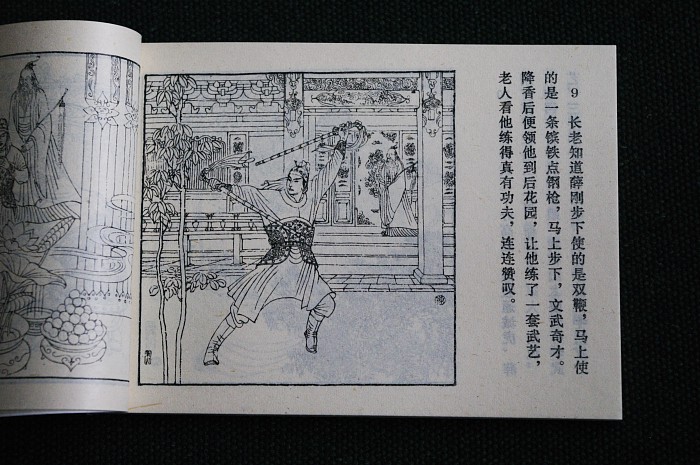 9 长老知道薛刚步下使的是双鞭，马上使
的是一条镔铁点钢枪，马上步下，文武奇才。
降香后便领他到后花园，让他练了一套武艺，
老人看他练得真有功夫，连连赞叹。